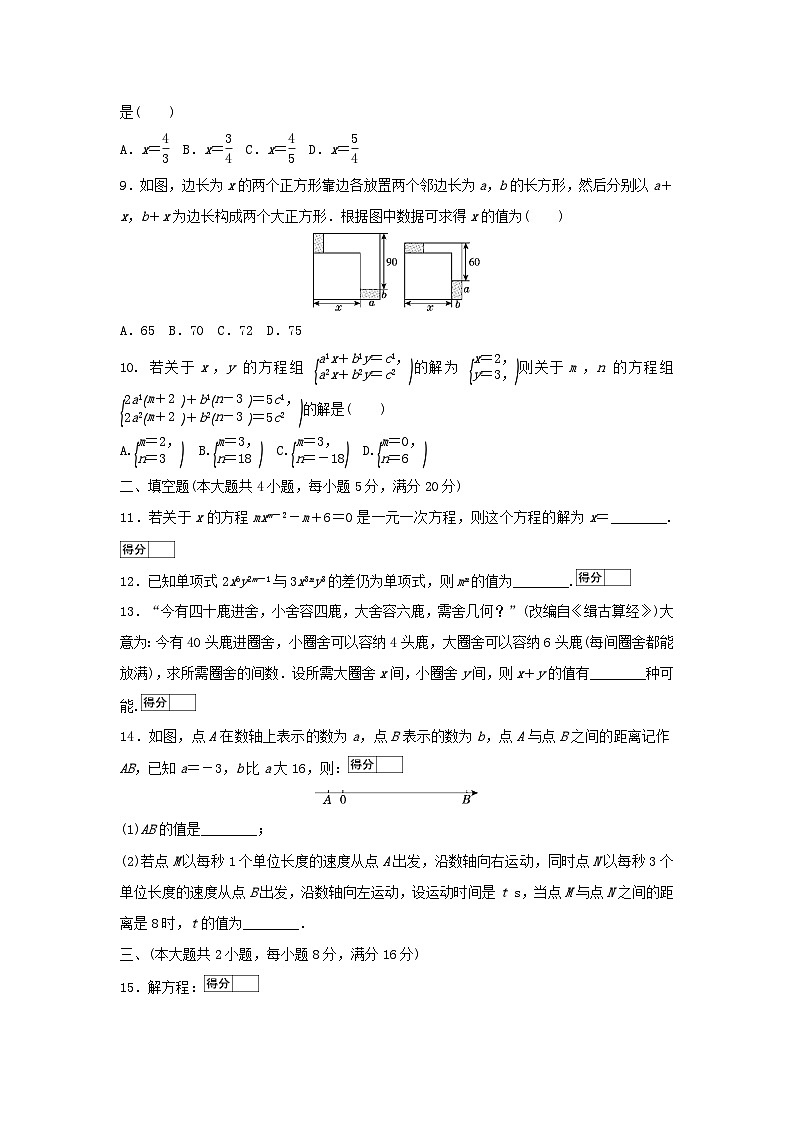 是(　　)
A. x=4/3 B. x=3/4 C. x=4/5 D. x=5/4
9.如图,边长为x的两个正方形靠边各放置两个邻边长为a,b的长方形,然后分别以a+
x,b+x为边长构成两个大正方形.根据图中数据可求得x的值为(　　)
90 b x a
60 a x b
A.65 B.70 C.72 D.75
10. 若关于x,y的方程组{a1x+b1y=c1, a2x+b2y=c2的解为{x=2, y=3,则关于m,n的方程组
{2a1(m+2)+b1(n-3)=5c1, 2a2(m+2)+b2(n-3)=5c2的解是(　　)
A.{m=2, n=3 B.{m=3, n=18 C.{m=3, n=-18 D.{m=0, n=6
二、填空题(本大题共4小题,每小题5分,满分20分)
11.若关于x的方程mx^{m-2}-m+6=0是一元一次方程,则这个方程的解为x=________.
得分
12.已知单项式2x^{6}y^{2m-1}与3x^{3n}y^{3}的差仍为单项式,则m^{n}的值为________.得分
13.“今有四十鹿进舍,小舍容四鹿,大舍容六鹿,需舍几何?”(改编自《缉古算经》)大
意为:今有40头鹿进圈舍,小圈舍可以容纳4头鹿,大圈舍可以容纳6头鹿(每间圈舍都能
放满),求所需圈舍的间数.设所需大圈舍x间,小圈舍y间,则x+y的值有________种可
能.得分
14.如图,点A在数轴上表示的数为a,点B表示的数为b,点A与点B之间的距离记作
AB,已知a=-3,b比a大16,则:得分
A 0 B
(1)AB的值是________;
(2)若点M以每秒1个单位长度的速度从点A出发,沿数轴向右运动,同时点N以每秒3个
单位长度的速度从点B出发,沿数轴向左运动,设运动时间是t s,当点M与点N之间的距
离是8时,t的值为________.
三、(本大题共2小题,每小题8分,满分16分)
15.解方程:得分